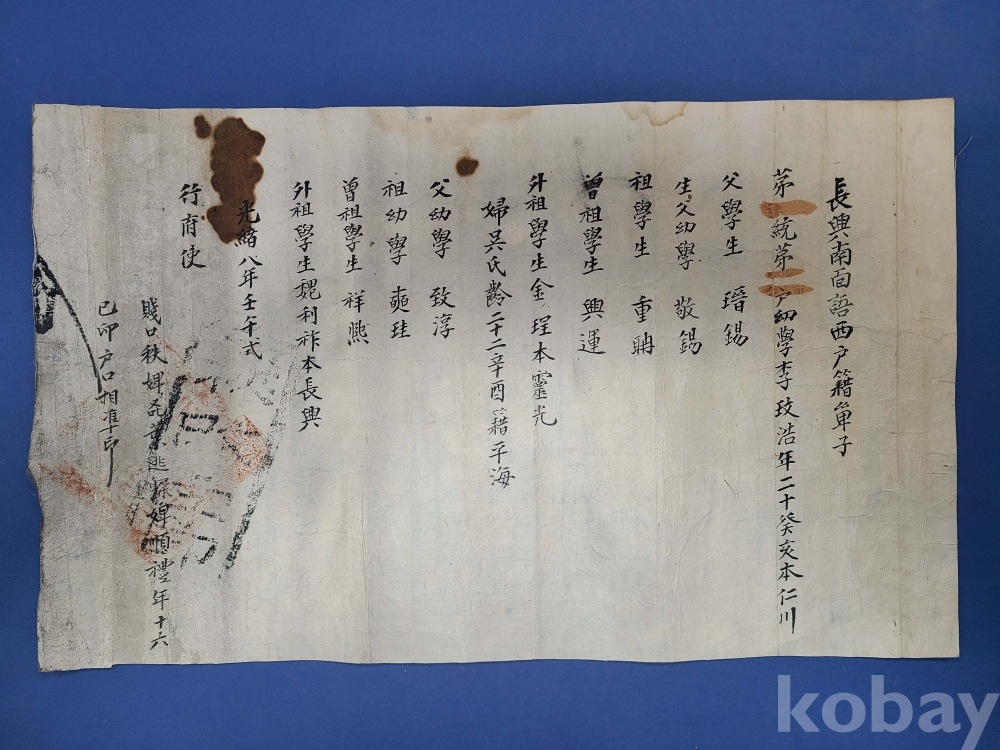 長興南面語西戶籍單子
第一統第一戶幼學李玟浩年二十癸亥本仁川
父學生 瑨錫
生父幼學 敬錫
祖學生 重聃
曾祖學生 興運
外祖學生金珵本靈光
婦吳氏齡二十二辛酉籍平海
父幼學 致淳
祖幼學 珪
曾祖學生 祥熊
外祖學生魏利祚本長興
光緖八年壬午式
行府使
賤口秩婢 逃 婢順禮年十六
已印戶口相准印
kobay